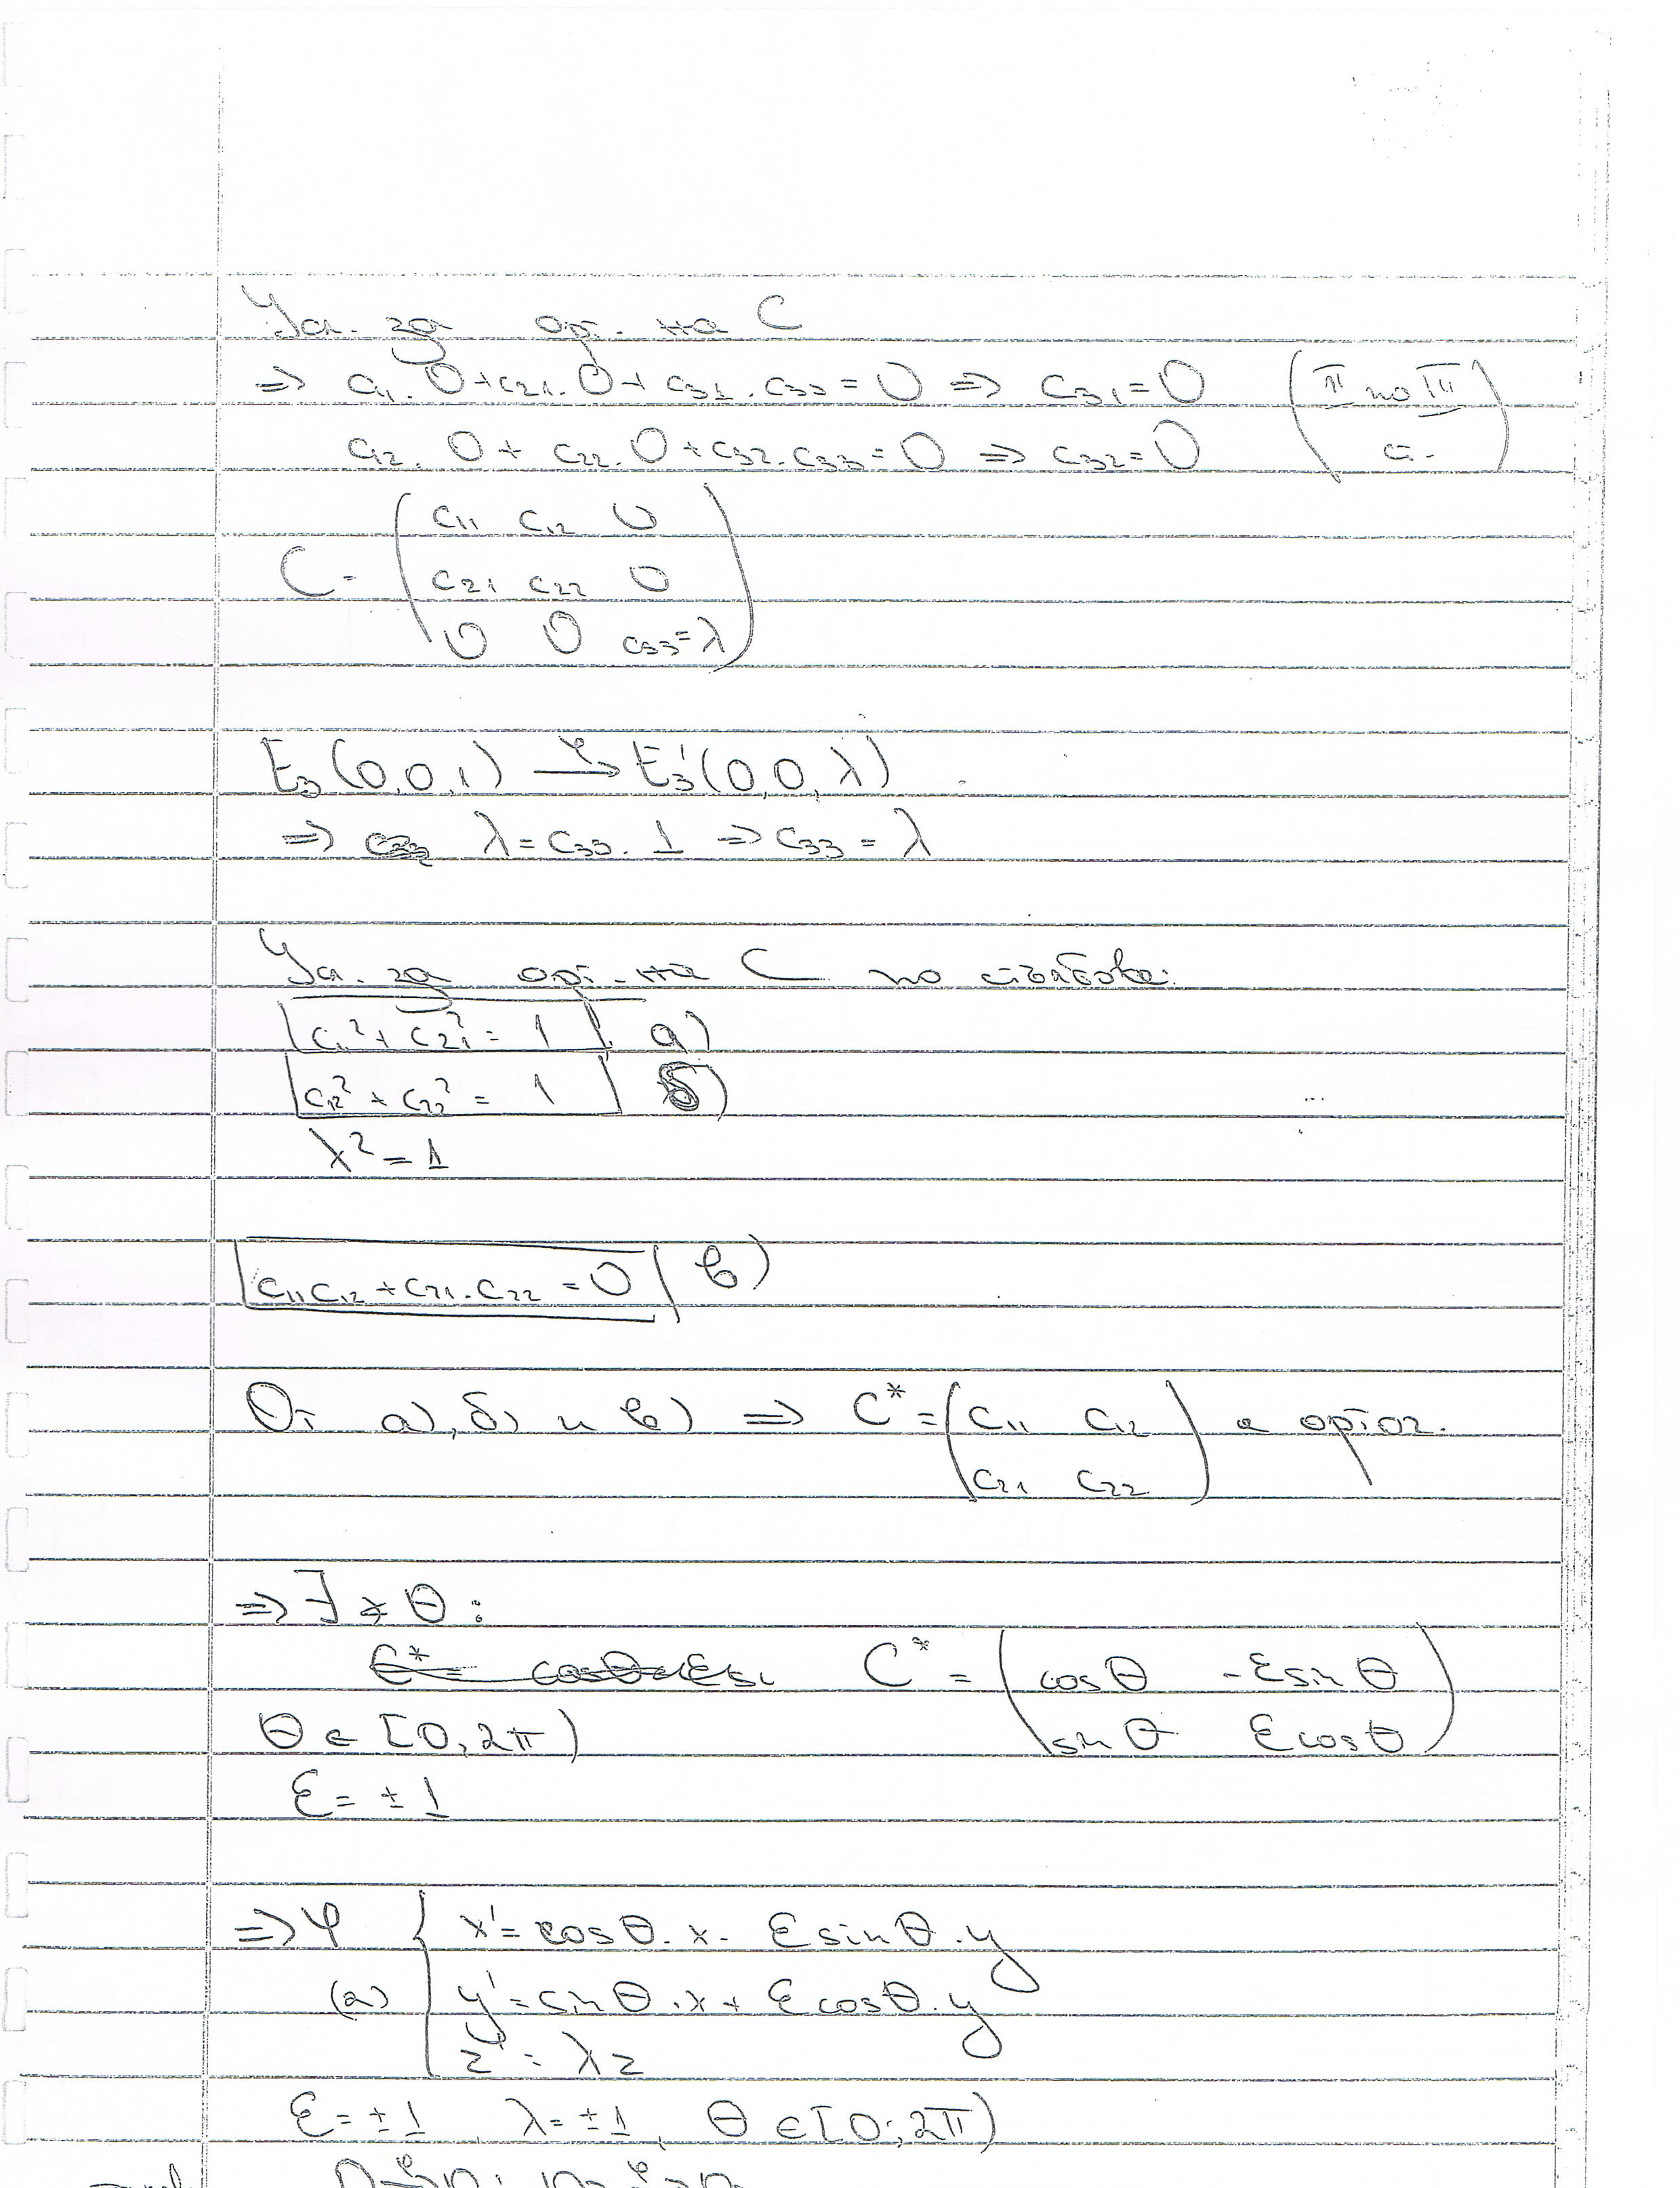 Усл. за орт. на C
=> c₁₁.0+c₂₁.0+c₃₁.c₃₃=0 => c₃₁=0 (II по III
c₁₂.0+c₂₂.0+c₃₂.c₃₃=0 => c₃₂=0 ст.)
c₁₁ c₁₂ 0
C= c₂₁ c₂₂ 0
0 0 c₃₃=λ
E₃(0,0,1) →φ E₃'(0,0,λ)
=> λ=c₃₃.1 => c₃₃=λ
Усл. за орт. на C по стълбове:
c₁₁²+c₂₁²=1 а)
c₁₂²+c₂₂²=1 б)
λ²=1
c₁₁c₁₂+c₂₁.c₂₂=0 в)
От а), б) и в) => C*=(c₁₁ c₁₂) е ортог.
c₂₁ c₂₂
=> ∃ ∢ θ:
C*=(cosθ -εsinθ
θ∈[0;2π) sinθ εcosθ)
ε=±1
=> φ { x'=cosθ.x-εsinθ.y
(2) y'=sinθ.x+εcosθ.y
z'=λz
ε=±1, λ=±1, θ∈[0;2π)